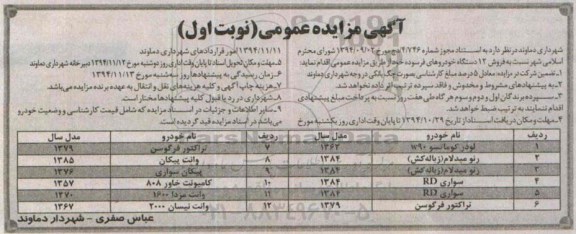 آگهی مزایده عمومی (نوبت اول)
شهرداری دماوند در نظر دارد به استناد مجوز شماره ۴/۷۴۶ مورخ ۱۳۹۴/۰۹/۰۲ شورای محترم
اسلامی شهر نسبت به فروش ۱۲ دستگاه خودروهای فرسوده خود از طریق مزایده عمومی اقدام نماید:
۱-تضمین شرکت در مزایده: معادل ۵ درصد مبلغ کارشناسی بصورت چک بانکی در وجه شهرداری دماوند
۲-به پیشنهادهای مشروط و مخدوش و فاقد سپرده ترتیب اثر داده نخواهد شد.
۳-سپرده برندگان اول و دوم و سوم هرگاه طی هفت روز نسبت به پرداخت مبلغ پیشنهادی
اقدام ننمایند به ترتیب ضبط خواهد شد.
۴-مهلت و مکان دریافت اسناد: از تاریخ ۱۳۹۴/۱۰/۲۹ تا پایان وقت اداری روز یکشنبه مورخ
۱۳۹۴/۱۱/۱۱ امور قراردادهای شهرداری دماوند
۵-مهلت و مکان تحویل اسناد تا پایان وقت اداری روز دوشنبه مورخ ۱۳۹۴/۱۱/۱۲ دبیرخانه شهرداری دماوند
۶-زمان رسیدگی به پیشنهادها روز سه‌شنبه مورخ ۱۳۹۴/۱۱/۱۳
۷-هزینه چاپ آگهی و کلیه هزینه‌های نقل و انتقال به عهده برنده مزایده می‌باشد.
۸-شهرداری در رد یا قبول کلیه پیشنهادها مختار است.
۹-سایر اطلاعات و جزئیات در اسناد مزایده که شامل قیمت کارشناسی و وضعیت خودرو
می‌باشد در اسناد مزایده قید گردیده است.
ردیف نام خودرو مدل سال ردیف نام خودرو مدل سال
۱ لودر کوماتسو w90 ۱۳۶۲ ۷ تراکتور فرگوسن ۱۳۷۹
۲ رنو میدلام (زباله‌کش) ۱۳۸۴ ۸ وانت پیکان ۱۳۸۵
۳ رنو میدلام (زباله‌کش) ۱۳۸۴ ۹ پیکان سواری ۱۳۷۶
۴ سواری RD ۱۳۸۴ ۱۰ کامیونت خاور ۸۰۸ ۱۳۵۷
۵ سواری RD ۱۳۸۴ ۱۱ وانت مزدا ۱۶۰۰ ۱۳۷۰
۶ تراکتور فرگوسن ۱۳۷۹ ۱۲ وانت نیسان ۲۰۰۰ ۱۳۶۷
عباس صفری - شهردار دماوند